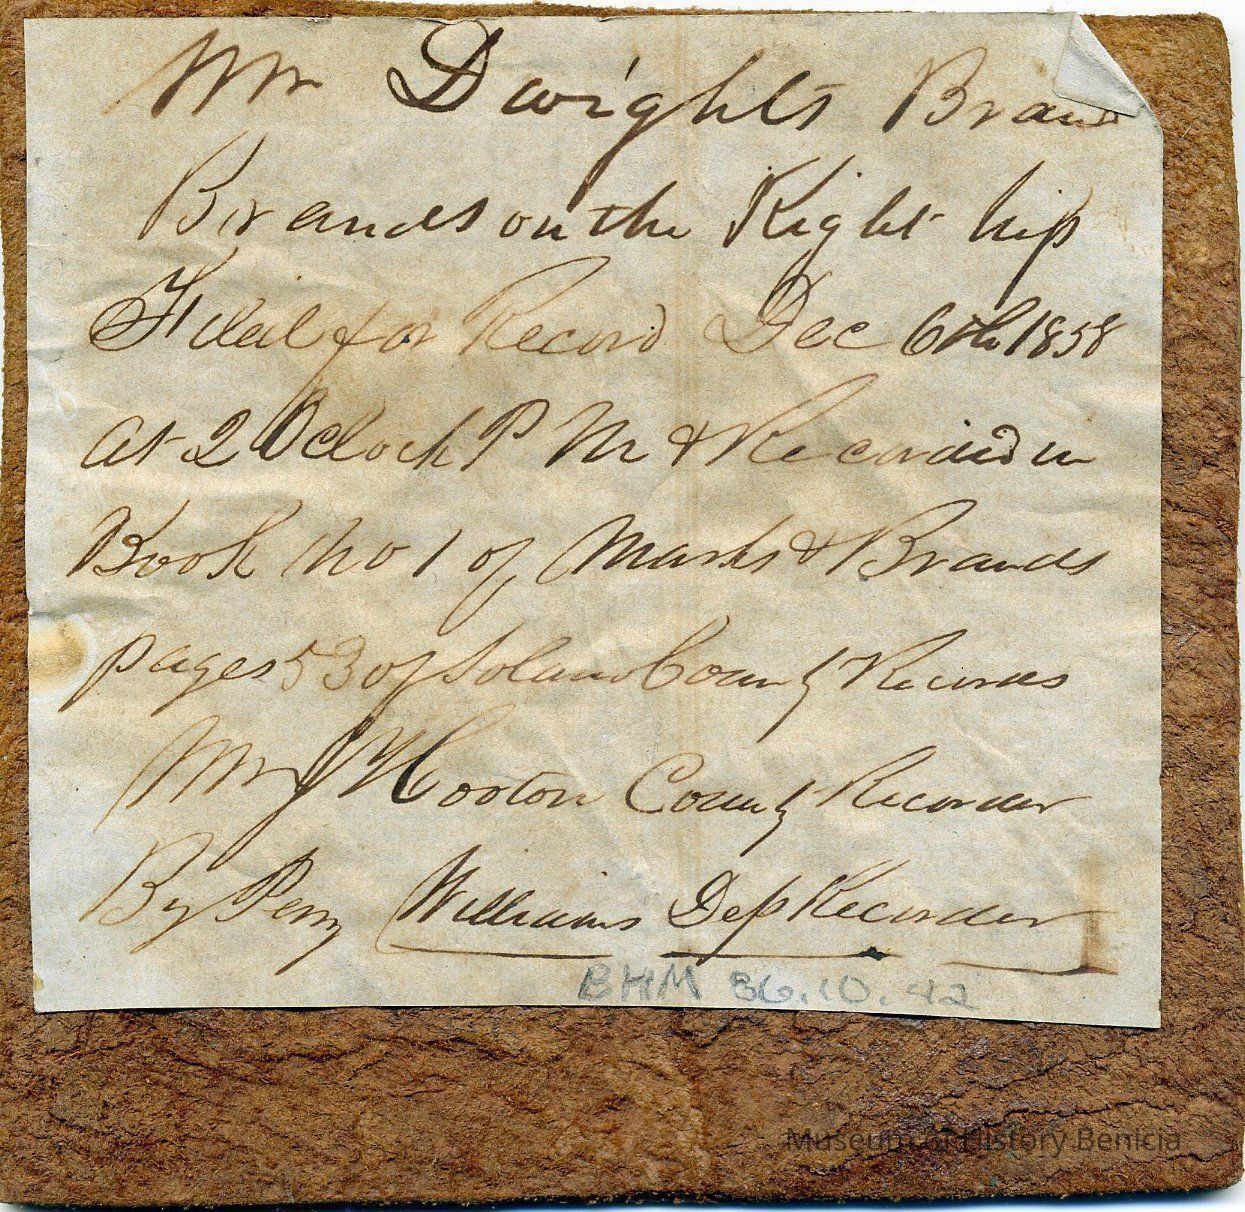 Wm Dwights Brand
Brands on the Right hip
Filed for Record Dec 6th 1858
at 2 Oclock P M & Recorded in
Book no 1 of Marks & Brands
pages 53 of Solano County Records
Wm J Hooton County Recorder
By Perry Williams Dep Recorder
BHM 86.10.42
Museum of History Benicia